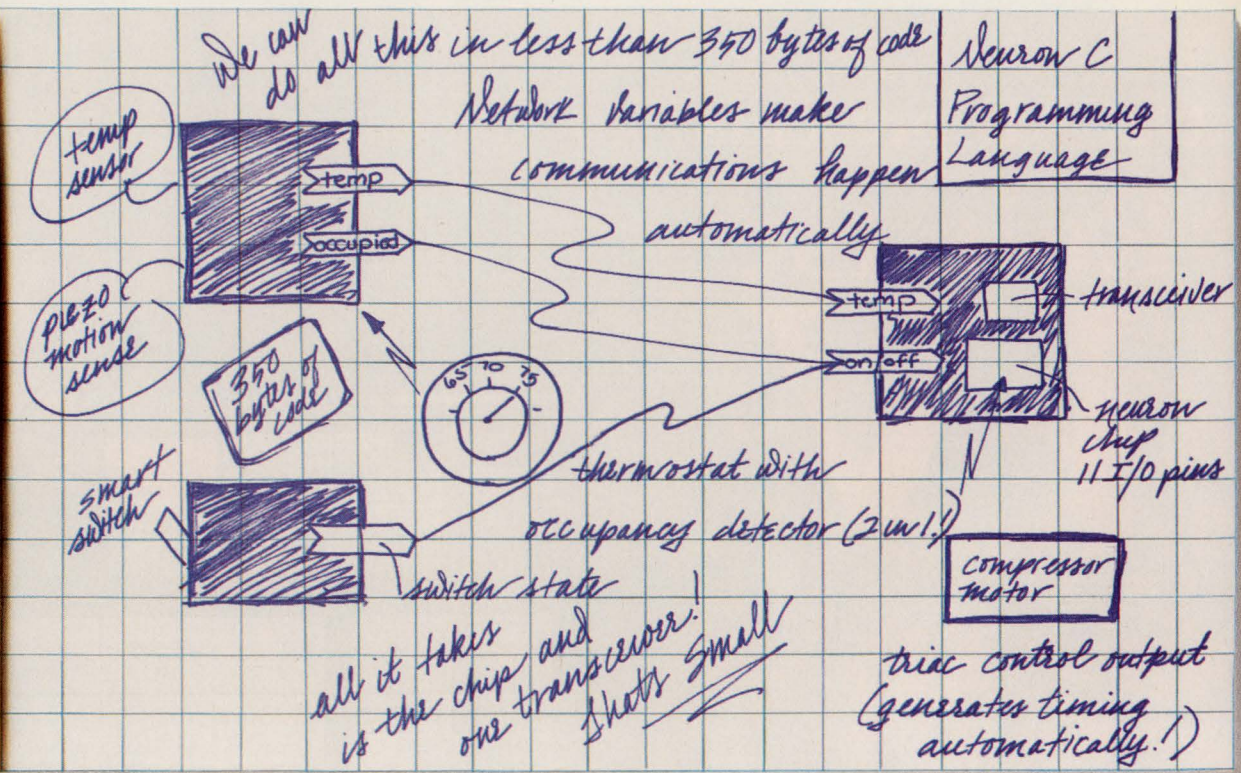 We can
do all this in less than 350 bytes of code
Network Variables make
communications happen
automatically
Neuron C
Programming
Language
temp
sensor
temp
occupied
piezo
motion
sense
350
bytes of
code
65 70 75
temp
on/off
transceiver
neuron
chip
11 I/O pins
smart
switch
thermostat with
occupancy detector (2 in 1!)
switch state
compressor
motor
all it takes
is the chip and
our transceiver!
that's small
triac control output
(generates timing
automatically!)